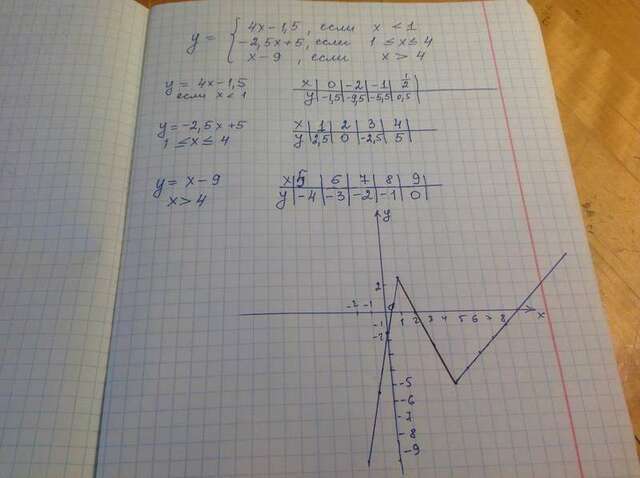 y = { 4x-1,5, если x < 1
-2,5x+5, если 1 ≤ x ≤ 4
x-9, если x > 4
y = 4x-1,5
если x < 1
x | 0 | -2 | -1 | 1/2
y | -1,5 | -9,5 | -5,5 | 0,5
y = -2,5x+5
1 ≤ x ≤ 4
x | 1 | 2 | 3 | 4
y | 2,5 | 0 | -2,5 | 5
y = x-9
x > 4
x | 5 | 6 | 7 | 8 | 9
y | -4 | -3 | -2 | -1 | 0
y
2
-2 -1 0 1 2 3 4 5 6 7 8 x
-1
-2
-5
-6
-7
-8
-9